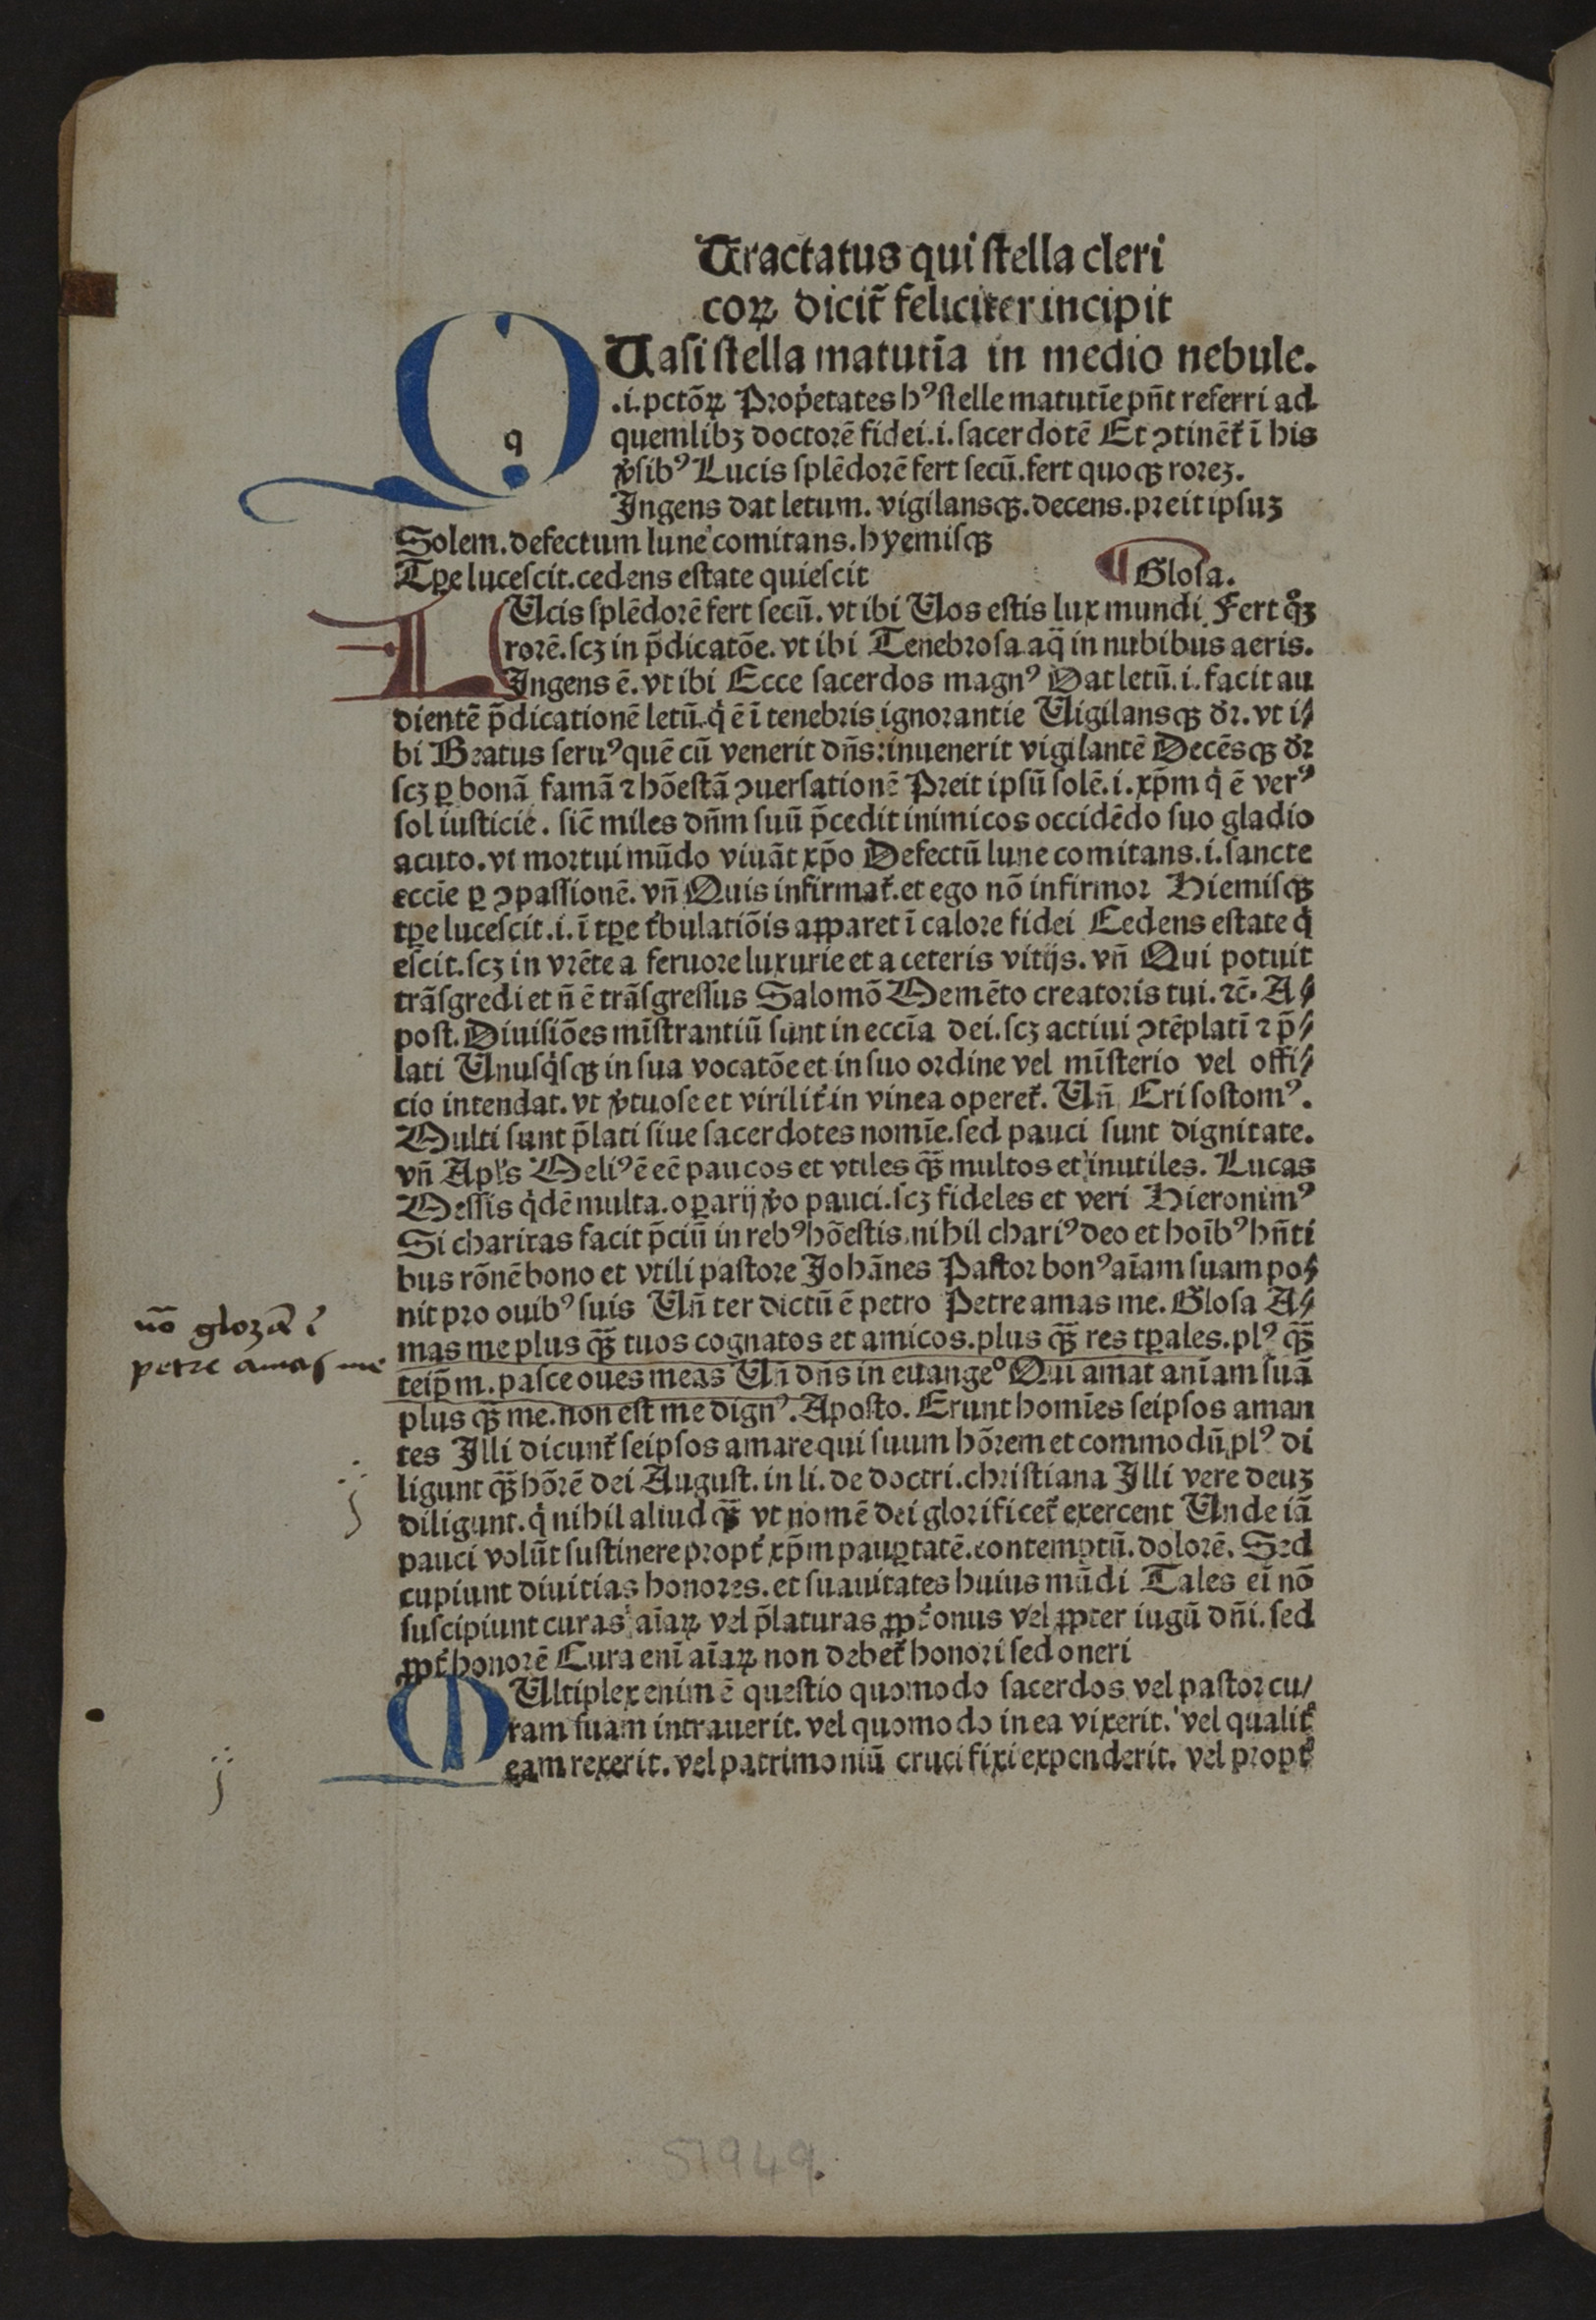 Tractatus qui stella cleri
coꝝ dicit᷑ feliciter incipit
QUasi stella matutīa in medio nebule.
.i. pctōꝝ Prop̄etates hꝰ stelle matutīe pn̄t referri ad
quemlibꝫ doctorē fidei .i. sacerdotē Et ꝯtinēt᷑ ī his
v̓sibꝰ Lucis splēdorē fert secū. fert quoqꝫ rorez.
Ingens dat letum. vigilansqꝫ. decens. preit ipsuz
Solem. defectum lune comitans. hyemisqꝫ
Tꝑe lucescit. cedens estate quiescit
Glosa.
LUcis splēdorē fert secū. vt ibi Uos estis lux mundi Fert qͦꝫ
rorē. scꝫ in p̄dicatōe. vt ibi Tenebrosa aq̄ in nubibus aeris.
Ingens ē. vt ibi Ecce sacerdos magnꝰ Dat letū .i. facit au
dientē p̄dicationē letū. q̇ ē ī tenebris ignorantie Uigilansqꝫ dr̄. vt i⸗
bi Beatus seruꝰ quē cū venerit dn̄s: inuenerit vigilantē Decēsqꝫ dr̄
scꝫ ꝑ bonā famā ⁊ hōestā ꝯuersationē Preit ipsū solē .i. xp̄m q̇ ē verꝰ
sol iusticie. sic̄ miles dn̄m suū p̄cedit inimicos occidēdo suo gladio
acuto. vt mortui mūdo viuāt xp̄o Defectū lune comitans .i. sancte
eccīe ꝑ ꝯpassionē. vn̄ Quis infirmat᷑. et ego nō infirmor Hiemisqꝫ
tꝑe lucescit .i. ī tꝑe t̓bulatiōis apparet ī calore fidei Cedens estate q̇
escit. scꝫ in vrēte a feruore luxurie et a ceteris vitijs. vn̄ Qui potuit
trāsgredi et n̄ ē trāsgressus Salomō Memēto creatoris tui. ⁊c̄. A⸗
post. Diuisiōes mīstrantiū sunt in eccīa dei. scꝫ actiui ꝯtēplatī ⁊ p̄⸗
lati Unusq̇sqꝫ in sua vocatōe et in suo ordine vel mīsterio vel offi⸗
cio intendat. vt v̓tuose et virilit᷑ in vinea operet᷑. Un̄ Crisostomꝰ.
Multi sunt p̄lati siue sacerdotes nomīe. sed pauci sunt dignitate.
vn̄ Apl̓s Meliꝰ ē eē paucos et vtiles qꝫ̄ multos et inutiles. Lucas
Messis q̇dē multa. oꝑarij v̓o pauci. scꝫ fideles et veri Hieronimꝰ
Si charitas facit p̄ciū in rebꝰ hōestis. nihil chariꝰ deo et hoībꝰ hn̄ti
bus rōnē bono et vtili pastore Johānes Pastor bonꝰ aīam suam po⸗
nit pro ouibꝰ suis Un̄ ter dictū ē petro Petre amas me. Glosa A⸗
mas me plus qꝫ̄ tuos cognatos et amicos. plus qꝫ̄ res tꝑales. plꝰ qꝫ̄
teip̄m. pasce oues meas Un̄ dn̄s in euangeº Qui amat anīam suā
plus qꝫ̄ me. non est me dignꝰ. Aposto. Erunt homīes seipsos aman
tes Illi dicunt᷑ seipsos amare qui suum hōrem et commodū plꝰ di
ligunt qꝫ̄ hōrē dei August. in li. de doctri. christiana Illi vere deuz
diligunt. q̇ nihil aliud qꝫ̄ vt nomē dei glorificet᷑ exercent Unde iā
pauci volūt sustinere propt᷑ xp̄m pauꝑtatē. contemptū. dolorē. Sed
cupiunt diuitias honores. et suauitates huius mūdi Tales eī nō
suscipiunt curas aīaꝝ vel p̄laturas ꝓpt᷑ onus vel ꝓpter iugū dn̄i. sed
ꝓpt᷑ honorē Cura enī aīaꝝ non debet᷑ honori sed oneri
MUltiplex enim ē questio quomodo sacerdos vel pastor cu/
ram suam intrauerit. vel quomodo in ea vixerit. vel qualit᷑
eam rexerit. vel patrimoniū crucifixi expenderit. vel propt᷑
petre amas me
51949.